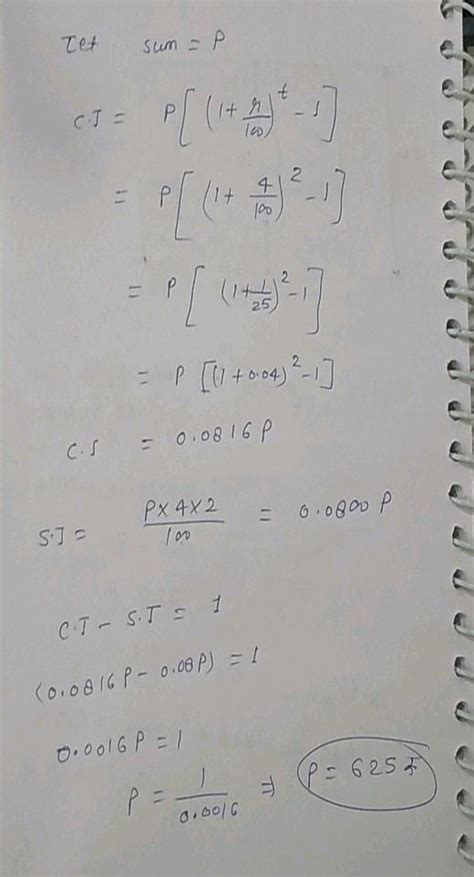 Let sum = P
C.I = P[(1+r/100)^t - 1]
= P[(1+4/100)^2 - 1]
= P[(1+1/25)^2 - 1]
= P[(1+0.04)^2 - 1]
C.I = 0.0816P
S.I = P×4×2/100 = 0.0800P
C.I - S.I = 1
(0.0816P - 0.08P) = 1
0.0016P = 1
P = 1/0.0016 ⇒ P = 625₹